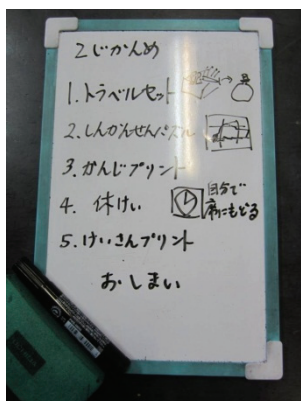 2じかんめ
1. トラベルセット
2. しんかんせんパズル
3. かんじプリント
4. 休けい 自分で
席にもどる
5. けいさんプリント
おしまい